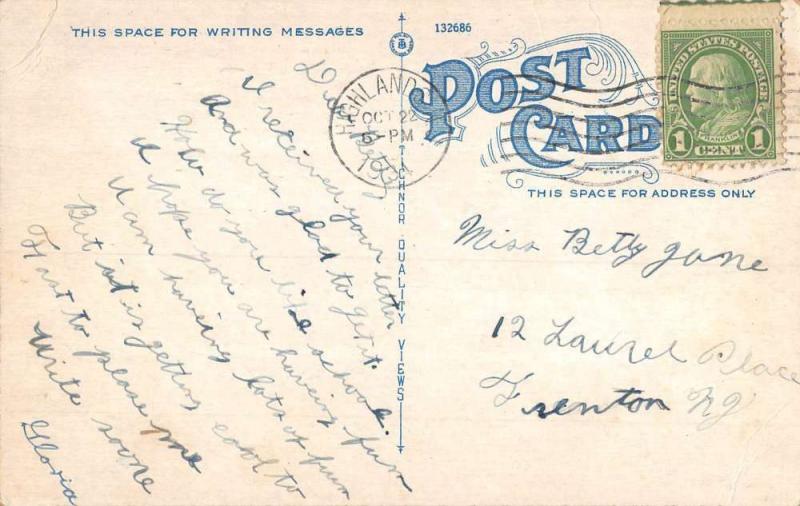 THIS SPACE FOR WRITING MESSAGES
132686
POST CARD
THIS SPACE FOR ADDRESS ONLY
TICHNOR QUALITY VIEWS
HIGHLAND
OCT 22
5-PM
193
UNITED STATES POSTAGE
FRANKLIN
1 CENT 1
Dear Betty
I received your letter
And was glad to get it.
How do you like school.
I hope you are having fun
I am having lots of fun
But it is getting cool to
Fast to please me
Write soone
Gloria
Miss Betty Jane
12 Laurel Place
Trenton NJ